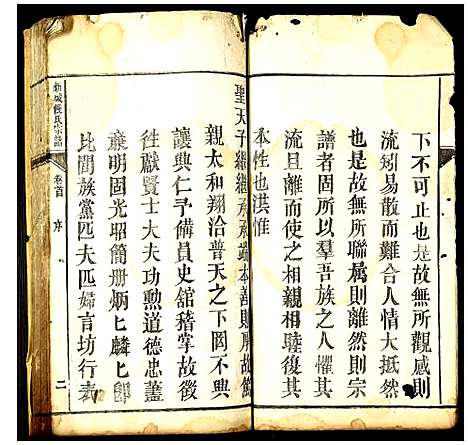 下不可止也是故無所觀感則
流矧易散而難合人情大抵然
也是故無所聯属則離然則宗
譜者固所以羣吾族之人懼其
流且離而使之相親相睦復其
本性也洪惟
聖天子繼繼承承疏本善則
親太和翔洽普天之下罔不興
讓興仁予備員史舘稽掌故徵
徃獻賢士大夫功勲道德忠藎
䕫明固光昭簡册炳匕麟匕卽
比閭族黨匹夫匹婦言坊行表
氏宗譜
卷首
序
二